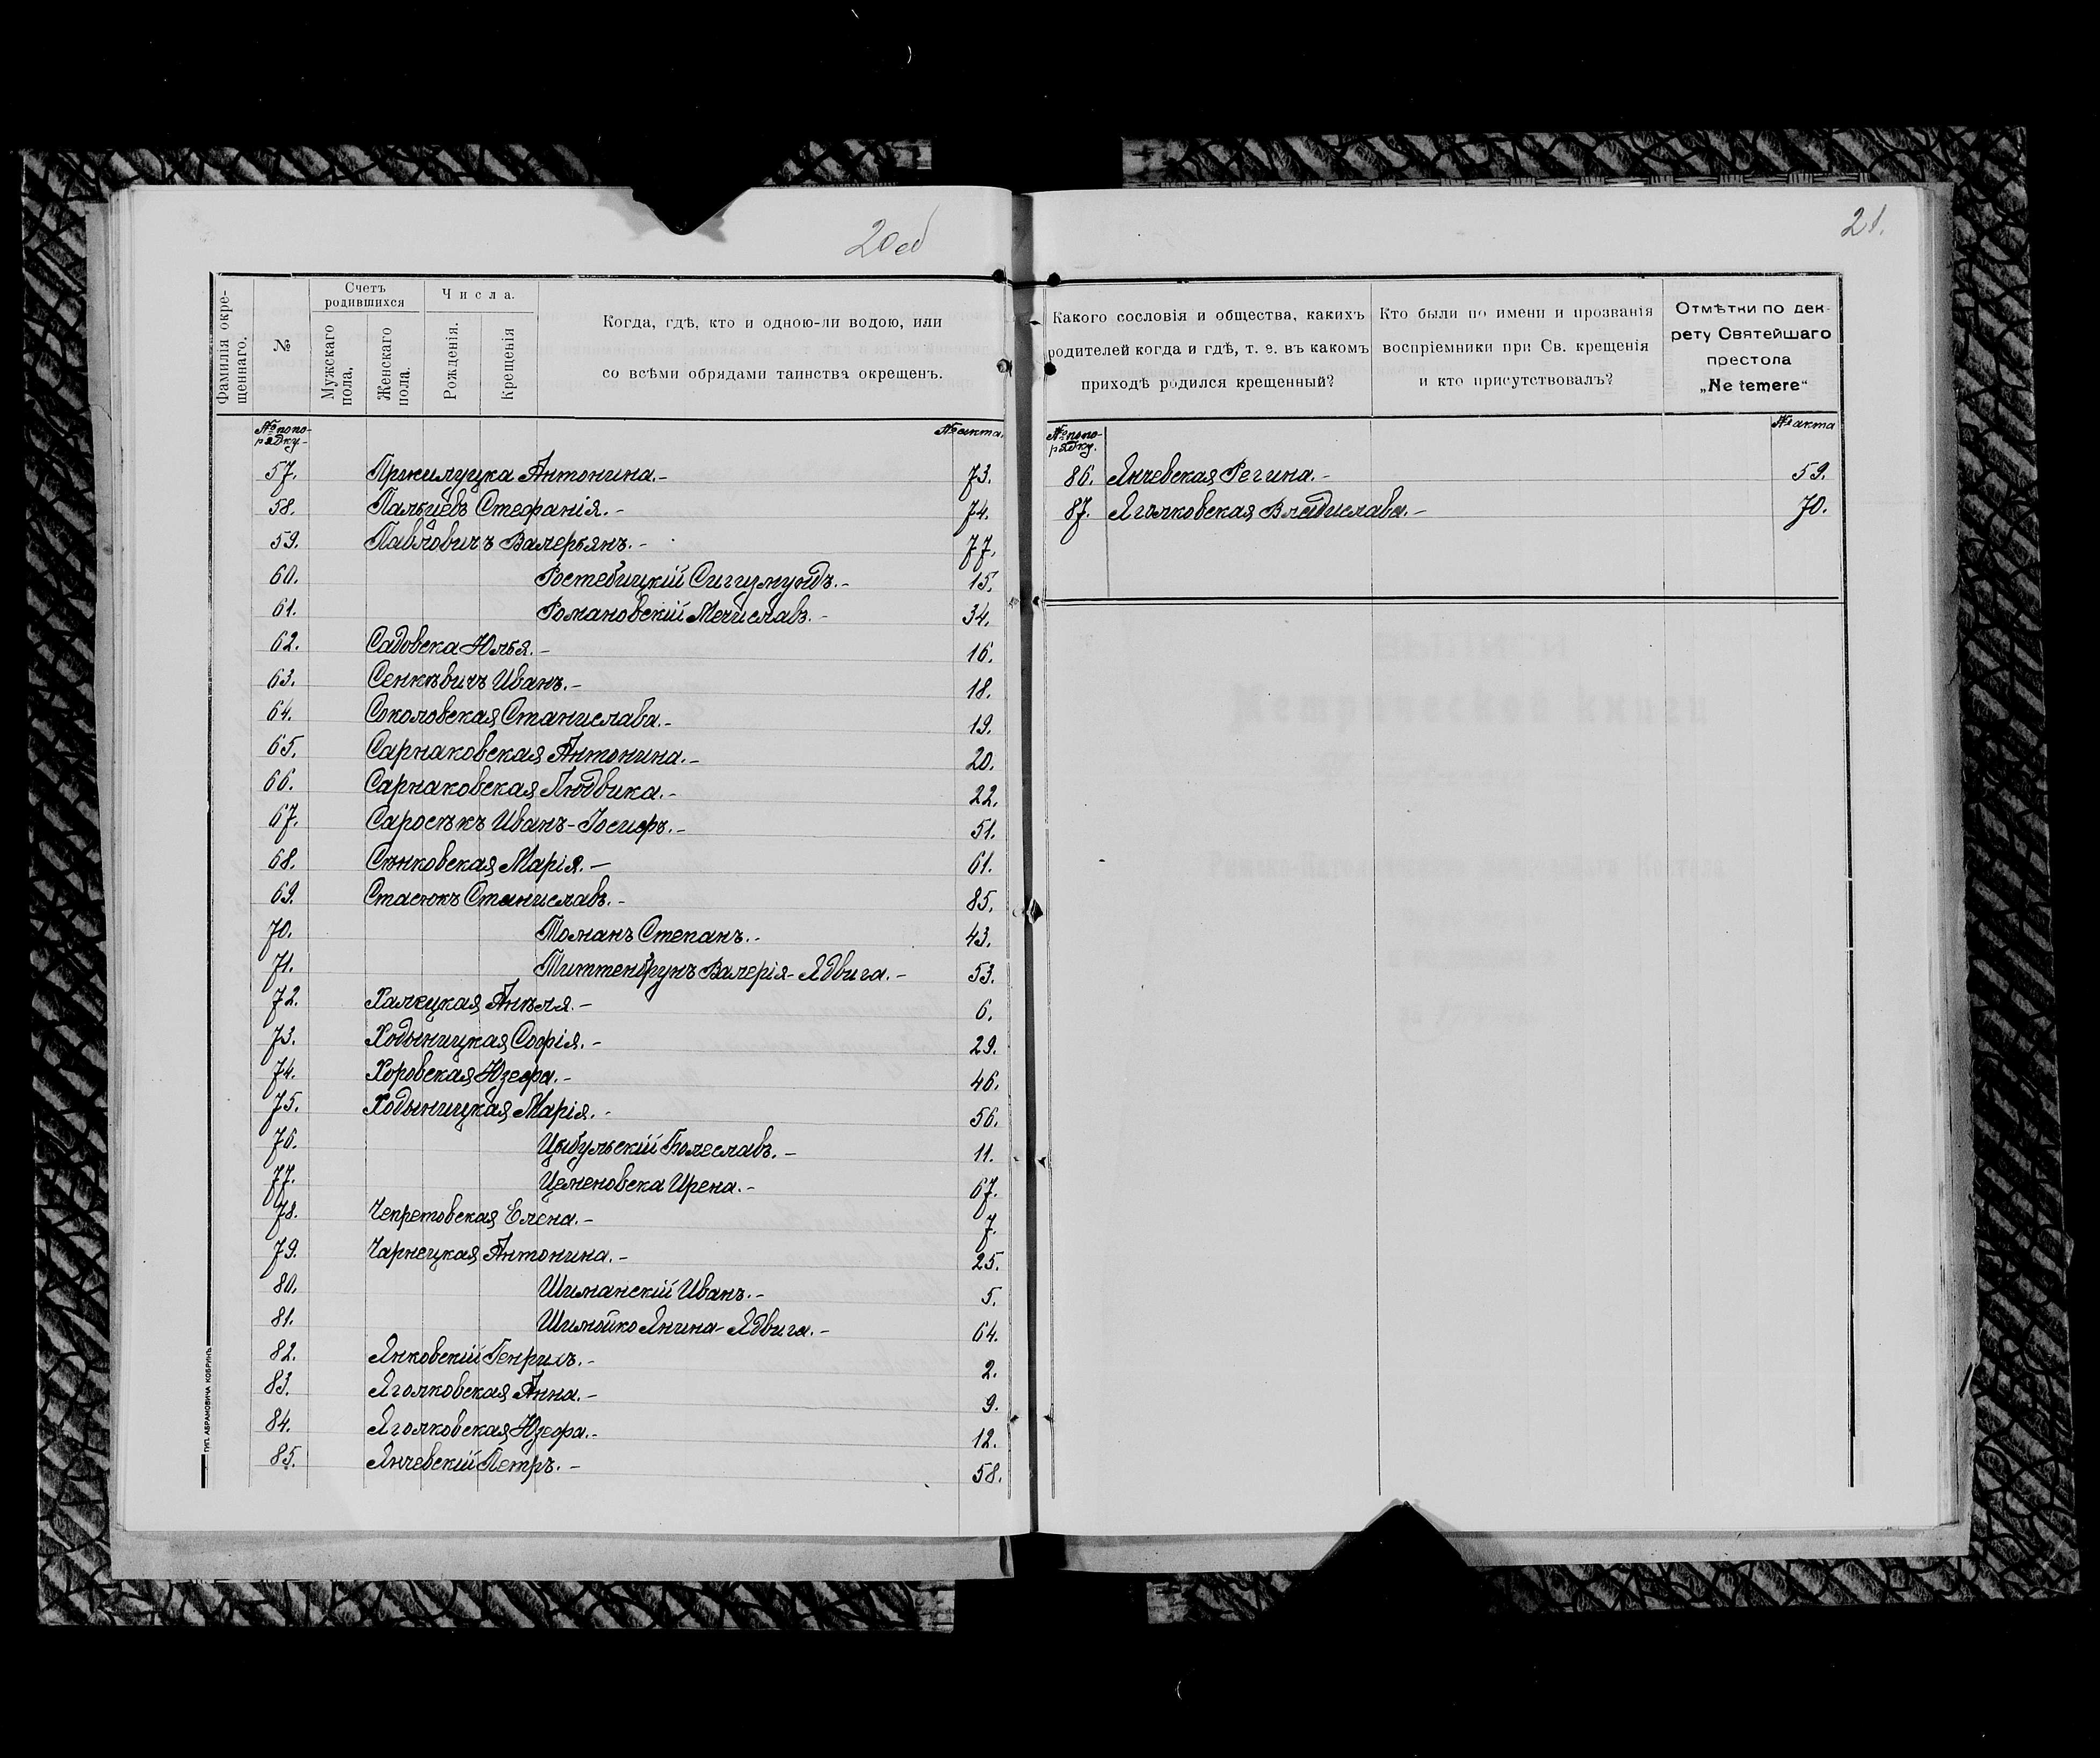 20об
21.
Фамилія окре-
щеннаго.
№
Счетъ
родившихся
Мужскаго
пола.
Женскаго
пола.
Числа.
Рожденія.
Крещенія
Когда, гдѣ, кто и одною-ли водою, или
со всѣми обрядами таинства окрещенъ.
№ по по-
рядку.-
№ акта.
57. Пржилуцка Антонина.- 73.
58. Пальцевъ Стефанія.- 74.
59. Павловичъ Валерьянъ.- 77.
60. Сигизмундъ.- 15.
61. Романовскій Мечиславъ.- 34.
62. Садовска Юлья.- 16.
63. Сенкѣвичъ Иванъ.- 18.
64. Соколовская Станислава.- 19.
65. Сарнаковская Антонина.- 20.
66. Сарнаковская Людвика.- 22.
67. Саросѣкъ Иванъ-Іосифъ.- 51.
68. Сѣнковская Марія.- 61.
69. Стасюкъ Станиславъ.- 85.
70. Томанъ Степанъ.- 43.
71. Титтенбрунъ Валерія-Ядвига.- 53.
72. Халецкая Анѣля.- 6.
73. Ходыницкая Софія.- 29.
74. Хоровская Юзефа.- 46.
75. Ходыницкая Марія.- 56.
76. Цыбульскій Болеславъ.- 11.
77. Цеменовска Ирена.- 67.
78. Чепретовская Елена.- 7.
79. Чарнецкая Антонина.- 25.
80. Шиманскій Иванъ.- 5.
81. Шимойко Янина-Ядвига.- 64.
82. Янковскій Генрихъ.- 2.
83. Яголковская Анна.- 9.
84. Яголковская Юзефа.- 12.
85. Янчевскій Петръ.- 58.
ТИП. АБРАМОВИЧА КОБРИНЪ
Какого сословія и общества, какихъ
родителей когда и гдѣ, т. е. въ какомъ
приходѣ родился крещенный?
Кто были по имени и прозванія
воспріемники при Св. крещенія
и кто присутствовалъ?
Отмѣтки по дек-
рету Святейшаго
престола
„Ne temere“
№ по по-
рядку.
№ акта
86. Янчевская Регина.- 59.
87. Яголковская Владислава.- 70.